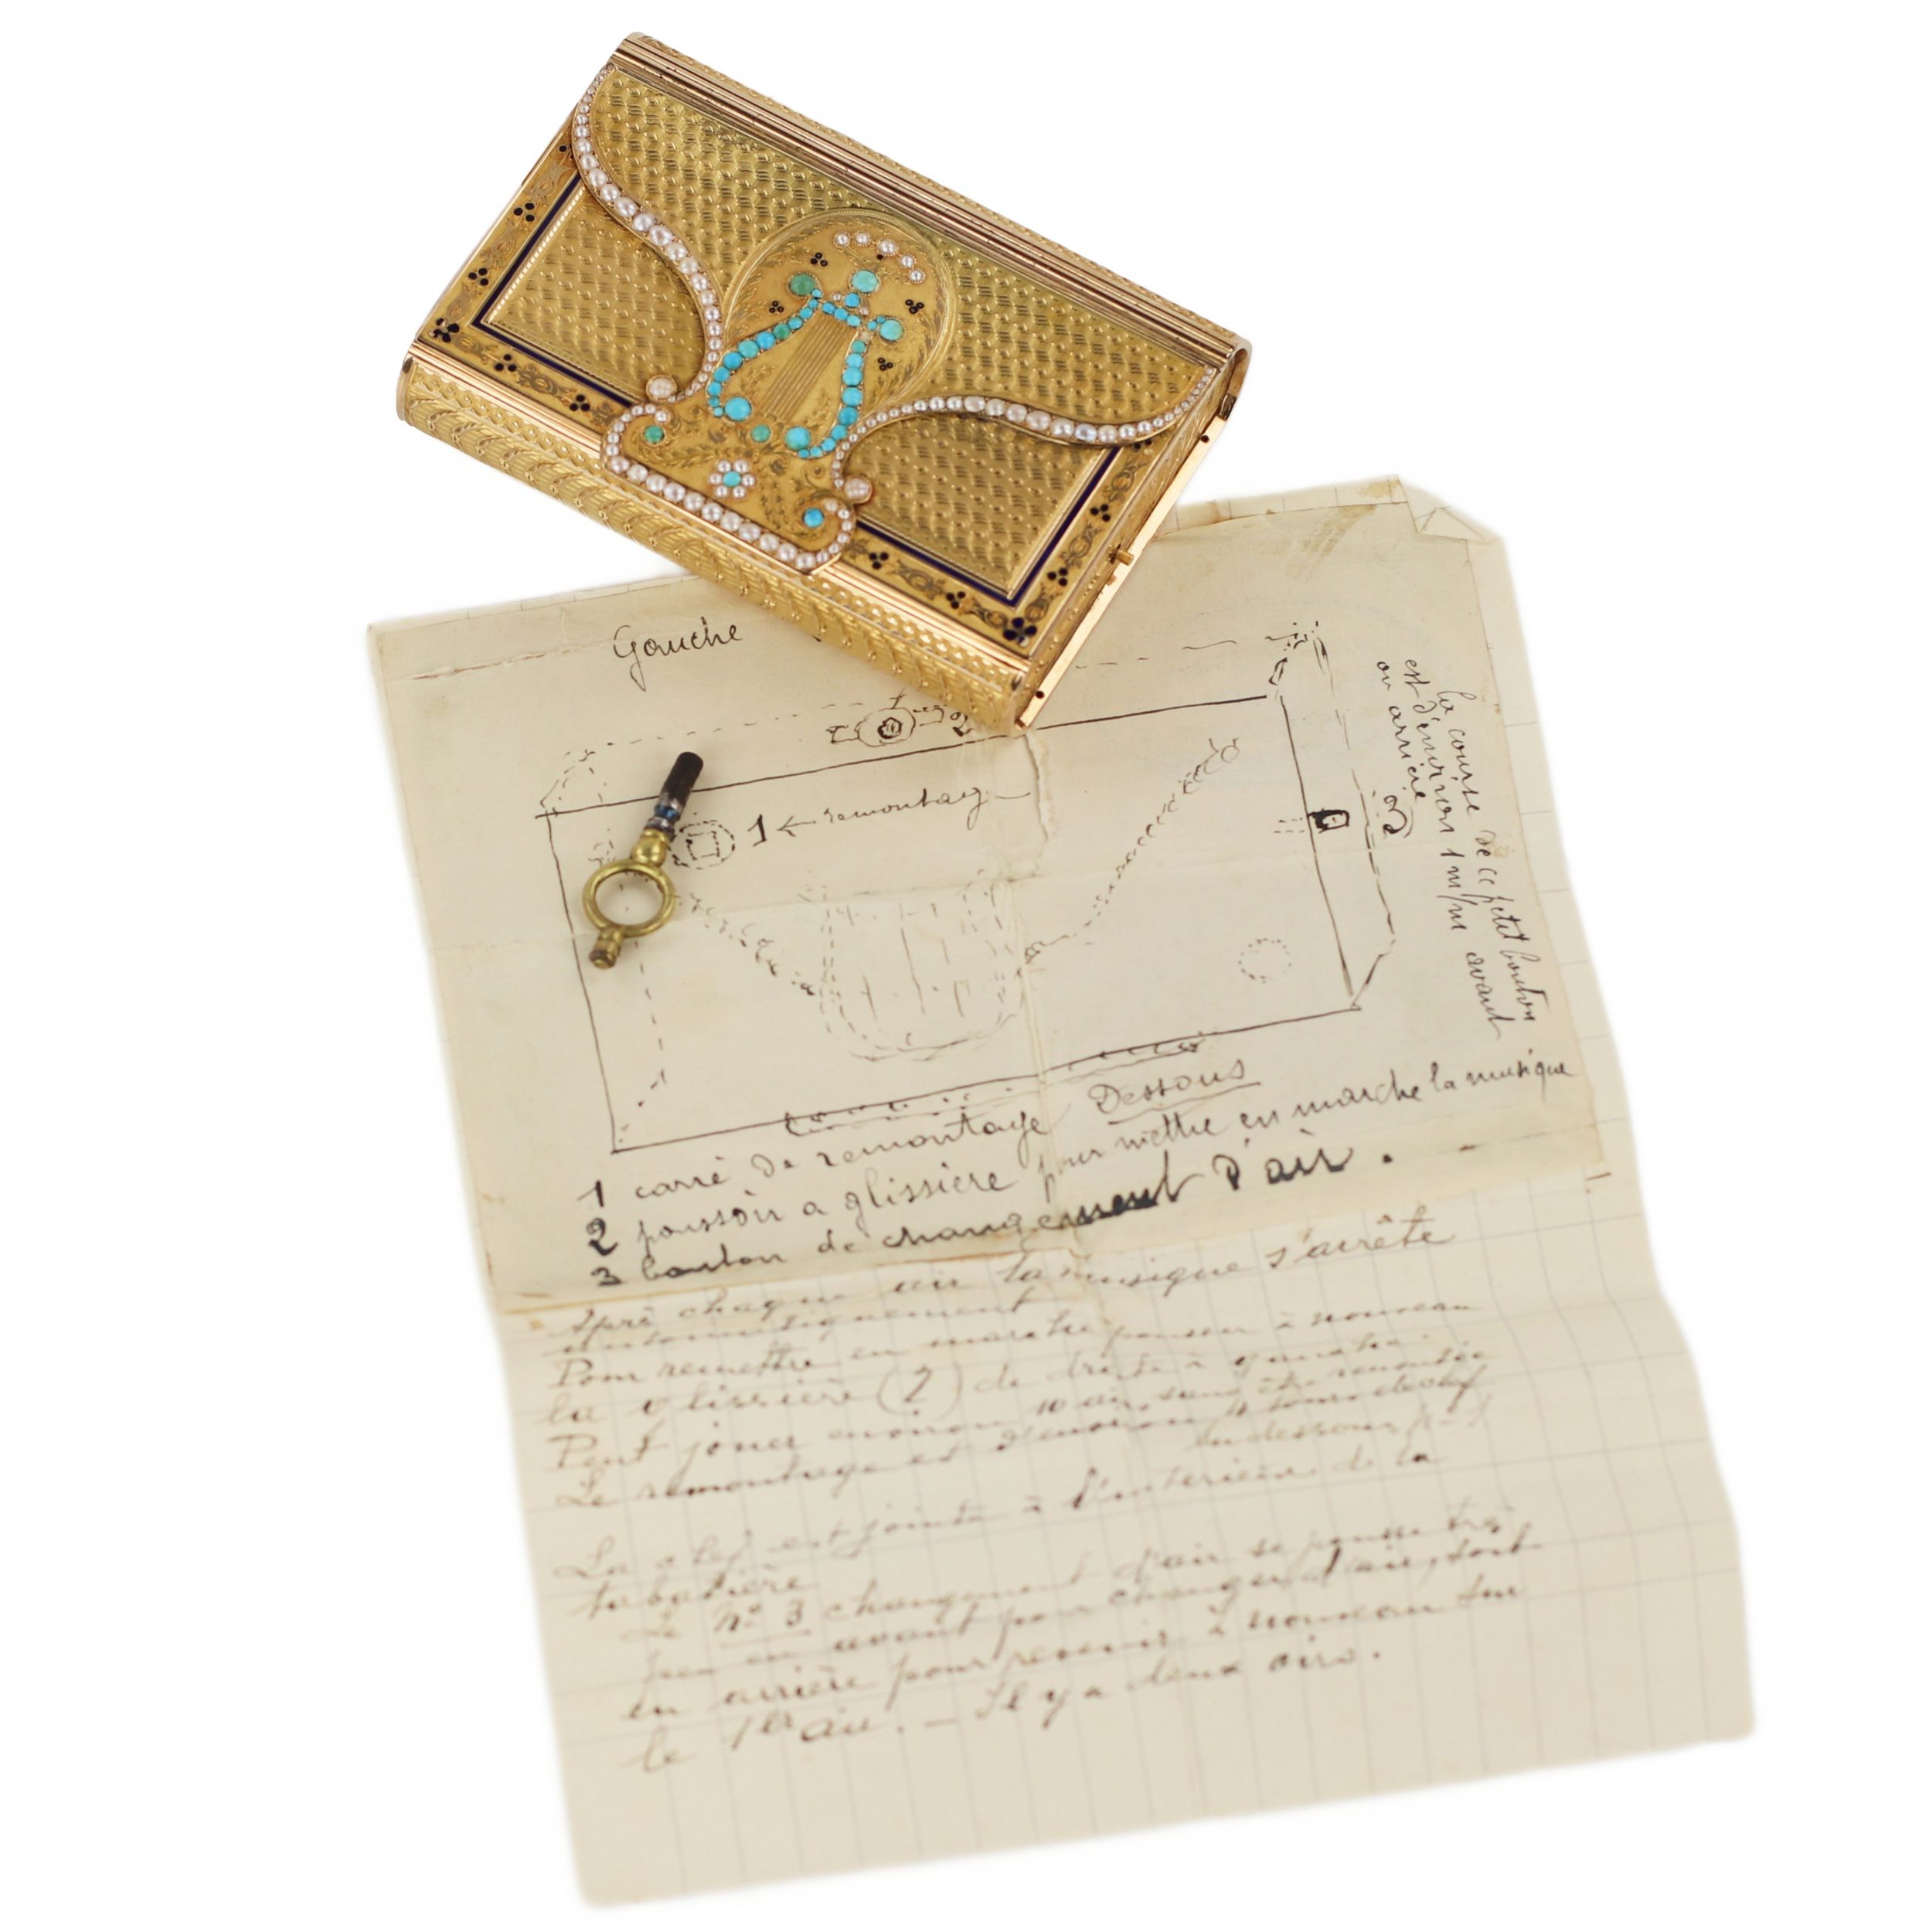 Gouche
1 ← remontag
2
3
la course de ce petit bouton
est d'environ 1 m/m avant
ou arrière
Dessous
1 carré de remontage
2 poussoir a glissière pour mettre en marche la musique
3 bouton de changement d'air.
Aprè chaque air la musique s'arrête
automatiquement
Pour remettre en marche pousser à nouveau
la glissière (2) de droite à gauche
Peut jouer environ 10 airs sans être remontée
Le remontage est d'environ 4 tours de clef
du dessous
La clef est jointe à l'intérieur de la
tabatière
Le No 3 changement d'air se pousse très
peu en avant pour changer d'air, soit
en arrière pour revenir à nouveau sur
le 1er air. — Il y a deux airs.